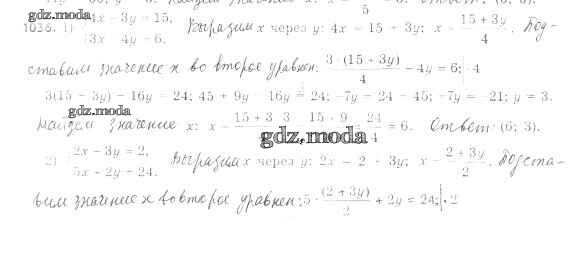 gdz.moda
1036. 1) 4x - 3y = 15, Выразим x через y: 4x = 15 + 3y; x = (15 + 3y)/4. Под-
3x - 4y = 6.
ставим значение x во второе уравнен: 3 · (15 + 3y)/4 - 4y = 6; · 4
3(15 - 3y) - 16y = 24; 45 + 9y - 16y = 24; -7y = 24 - 45; -7y = -21; y = 3.
gdz.moda
Найдем значение x: x = (15 + 3 · 3)/4 = (15 + 9)/4 = 24/4 = 6. Ответ: (6; 3).
gdz.moda
2) 2x - 3y = 2, Выразим x через y: 2x = 2 + 3y; x = (2 + 3y)/2. Подста-
5x - 2y = 24.
вим значение x во второе уравнен: 5 · (2 + 3y)/2 + 2y = 24; | · 2